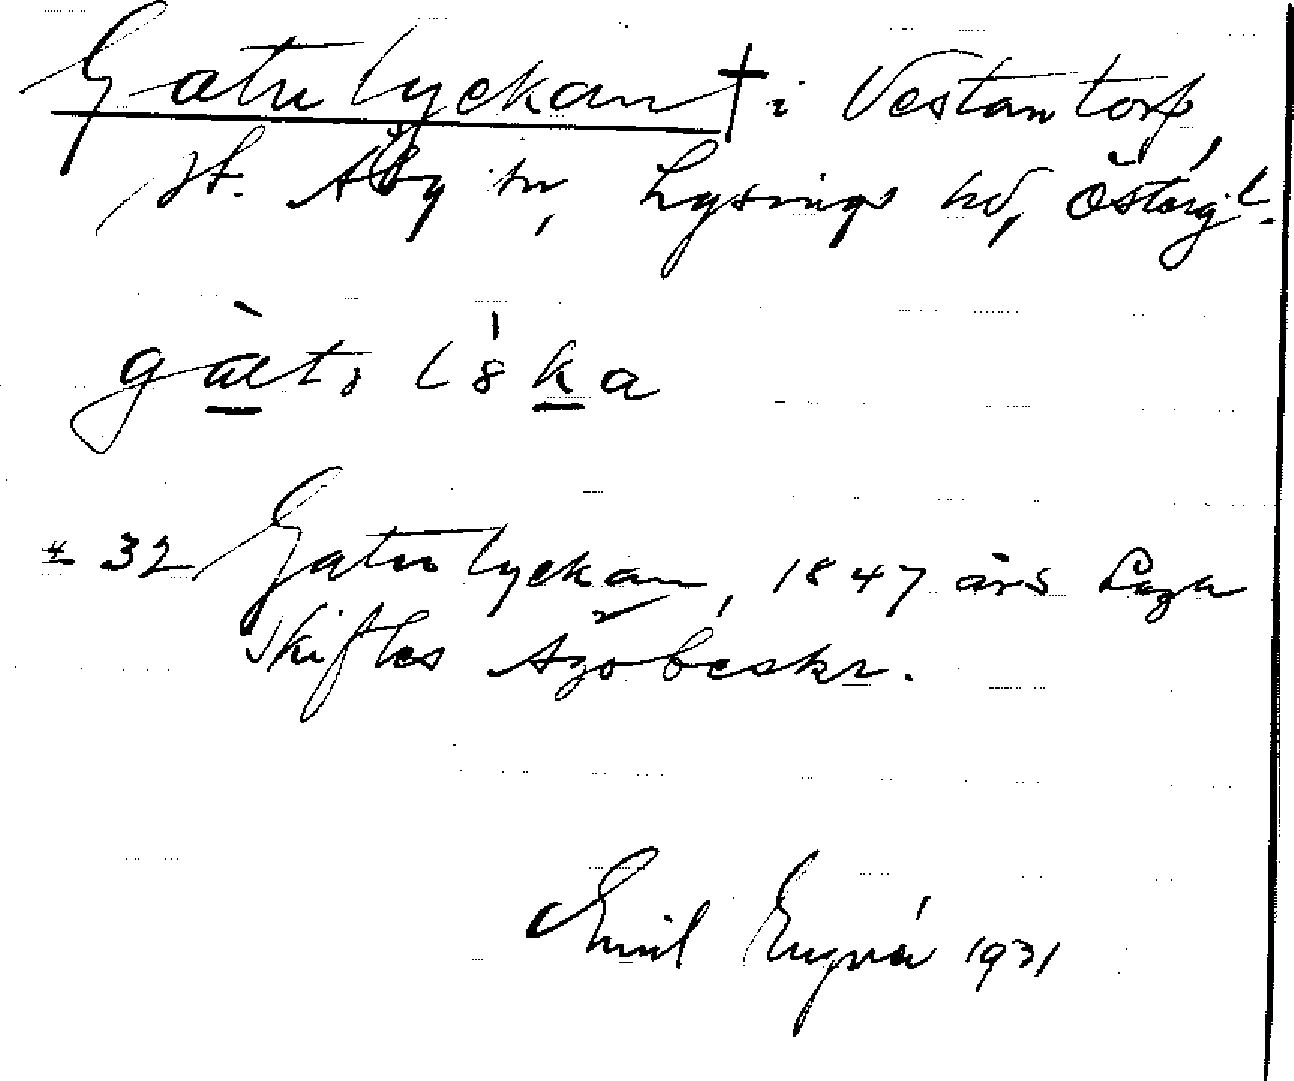 Gatulyckan † i Vestantorp,
St. Åby sn, Lysings hd, Östergl.
gàtɜ lɜ́ka
# 32 Gatulyckan, 1847 års Laga
Skiftes Ägobeskr.
Emil 1931